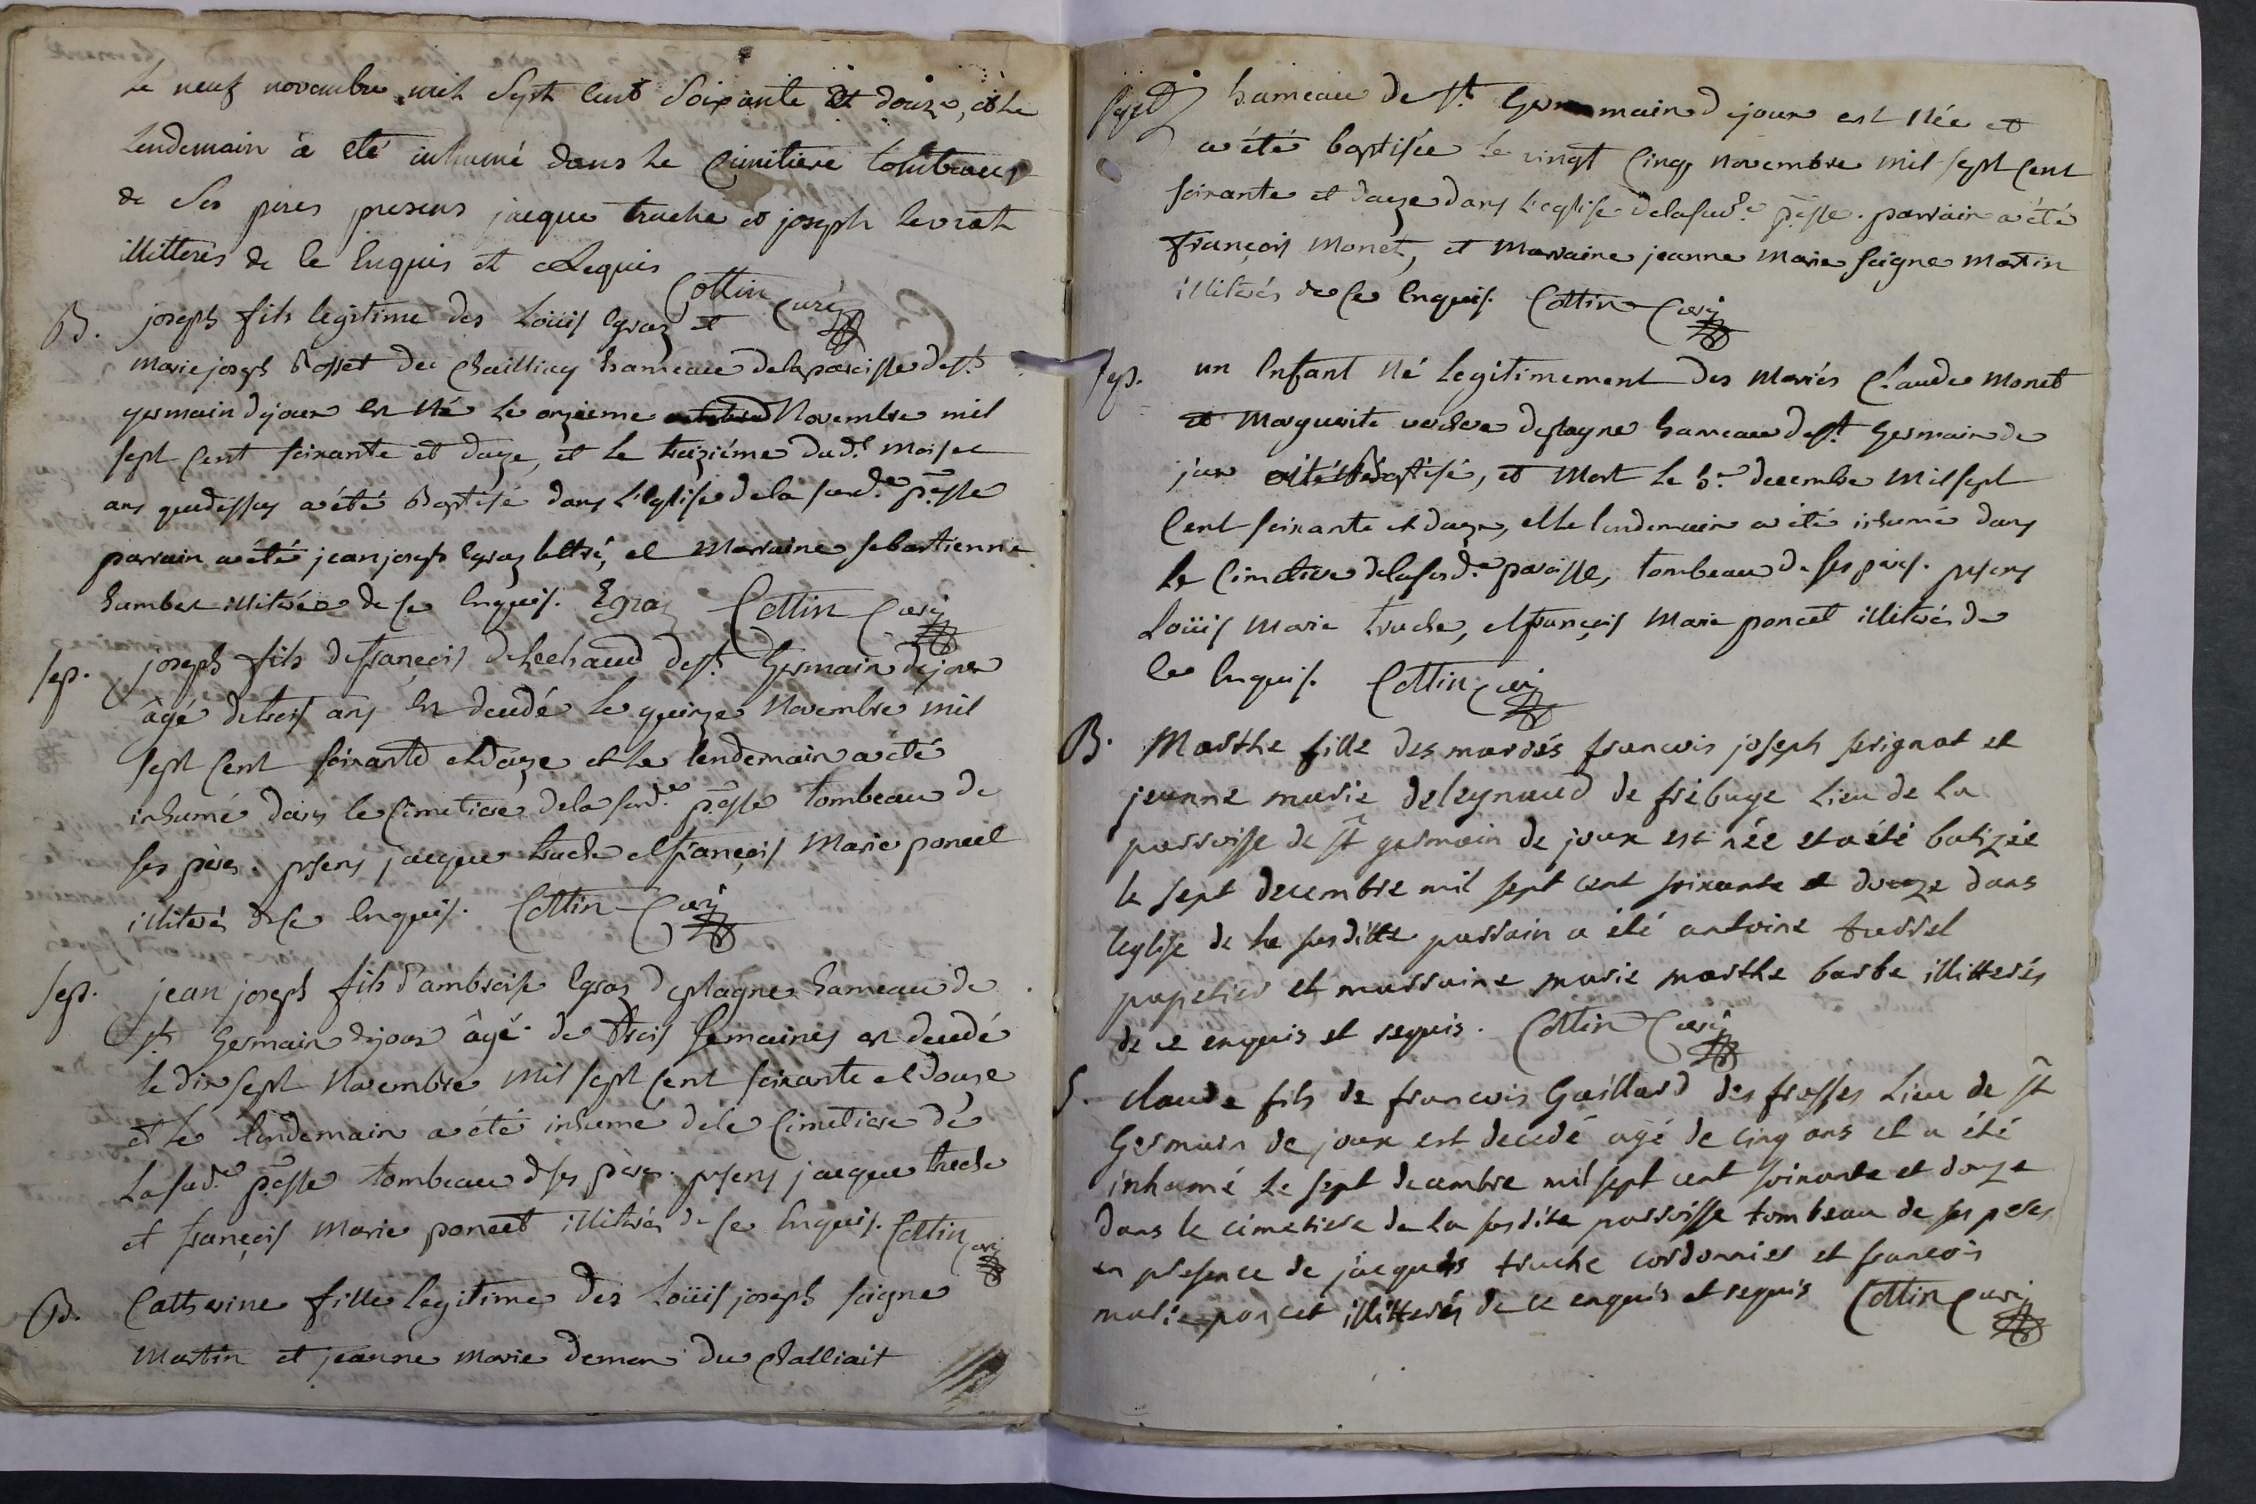 le neuf novembre mil sept cent soixante et douze, et le
lendemain à eté inhumé dans le cimitiere tombeau
de ses peres presens jacque truche et joseph levrat
illitterés de ce enquis et requis
Cottin curé
B. joseph fils legitime des Loüis Egraz et
marie joseph Rosset du Chailliay hameau de la paroisse de st
germain de joux est né le onzieme Novembre mil
sept cent soixante et douze, et le treiziéme dud.t mois et
ans que dessus a été Baptisé dans L'eglise de la susd.e p.sse
parrain a été jean joseph Egraz lettré, et Marraine sebastienne
humbert illiterée de ce enquis. Egraz Cottin Curé
sep. joseph fils de françois delechaud de st. Germain de joux
âgé de trois ans est decedé le quinze Novembre mil
sept cent soixante et douze et le lendemain a été
inhumé dans le Cimetiere de la susd.e p.sse tombeau de
ses pères. presens jacque truche et françois Marie poncet
illiterés de ce enquis. Cottin Curé
sep. jean joseph fils d'ambroise Egraz de plagne hameau de
st Germain de joux âgé de trois semaines est decedé
le dix sept Novembre mil sept cent soixante et douze
et le lendemain a été inhumé de le Cimetiere de
La susd.e p.sse tombeau de ses pères. presens jacque truche
et françois Marie poncet illiterés de ce enquis. Cottin curé
B. Catherine fille legitime des Loüis joseph seigne
Martin et jeanne Marie demon du Challiait
hameau de st. Germain de joux est Née et
a été baptisée le vingt cinq Novembre mil sept cent
soixante et douze dans L'eglise de la susd.e p.sse. parrain a été
françois Monet, et Marraine jeanne Marie seigne Martin
illiterés de ce enquis. Cottin Curé
sep. un Enfant Né Legitimement des Mariés Claude Monet
et Marguerite de plagne hameau de st. Germain de
joux a été Baptisé, et Mort le 3.e decembre Mil sept
Cent soixante et douze, et le lendemain a été inhumé dans
le Cimetiere de la susd.e paroisse, tombeau de ses pères. presens
Loüis Marie truche, et françois Marie poncet illiterés de
ce enquis. Cottin curé
B. Marthe fille des mariés francois joseph serignat et
jeanne marie deleynaud de frébuge Lieu de la
parroisse de st germain de joux est née et a été batizée
le sept decembre mil sept cent soixante et douze dans
leglise de la susditte parrain a été antoine
papetier et marraine marie marthe barbe illitterés
de ce enquis et requis. Cottin Curé
S. claude fils de francois Gaillard des frasses Lieu de st
Germain de joux est decedé agé de cinq ans et a été
inhumé le sept decembre mil sept cent soixante et douze
dans le cimetiere de la susdite parroisse tombeau de ses peres
en presence de jacques truche cordonnier et francois
marie poncet illitterés de ce enquis et requis Cottin Curé